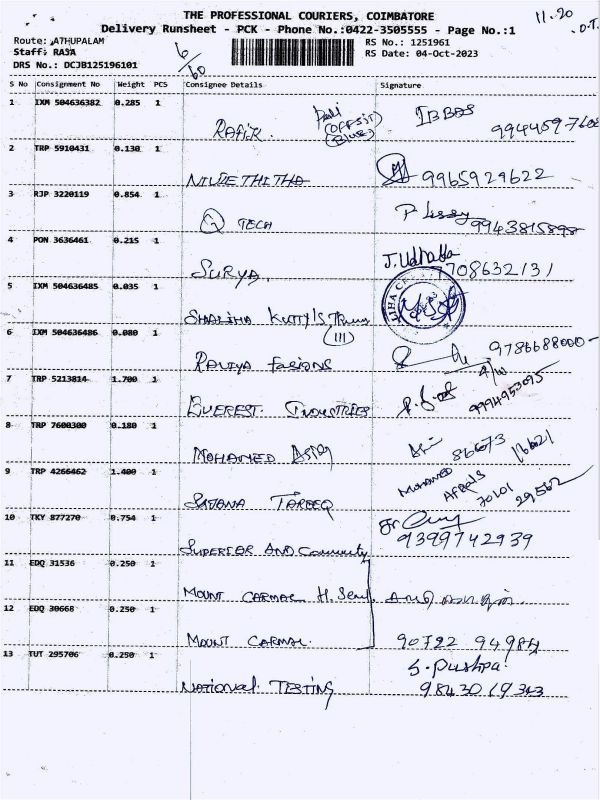 THE PROFESSIONAL COURIERS, COIMBATORE
11.20
Delivery Runsheet - PCK - Phone No.:0422-3505555 - Page No.:1
O.T.
Route: ATHUPALAM
RS No.: 1251961
Staff: RAJA
6/60
RS Date: 04-Oct-2023
DRS No.: DCJB125196101
S No Consignment No Weight PCS Consignee Details Signature
1 IXM 504636382 0.285 1
RAFIR. (OFFSIT) IBBAS
(Blue) 9944597608
2 TRP 5910431 0.130 1
NIVETHITHA 9965929622
3 RJP 3220119 0.854 1
Q TECH 9943815898
4 PON 3636461 0.215 1
SURYA. J. Udhaya
7708632131
5 IXM 504636485 0.035 1
SHALIHA Kutty's
(III)
6 IXM 504636486 0.080 1
RAVIYA Fasions 9786688000
7 TRP 5213814 1.700 1
EVEREST. INDUSTRIES 9994953095
8 TRP 7600300 0.180 1
MOHAMED 86673 16621
9 TRP 4266462 1.400 1
SATANA TAREEQ MOHAMED
70101 29562
10 TKY 877270 0.754 1
SUPERIOR AND Community 9399742939
11 EDQ 31536 0.250 1
MOUNT CARMAL H. Sent.
12 EDQ 30668 0.250 1
MOUNT CARMAL. 90722 94984
13 TUT 295706 0.250 1
S. Pushpa
National TESTING 9843019343